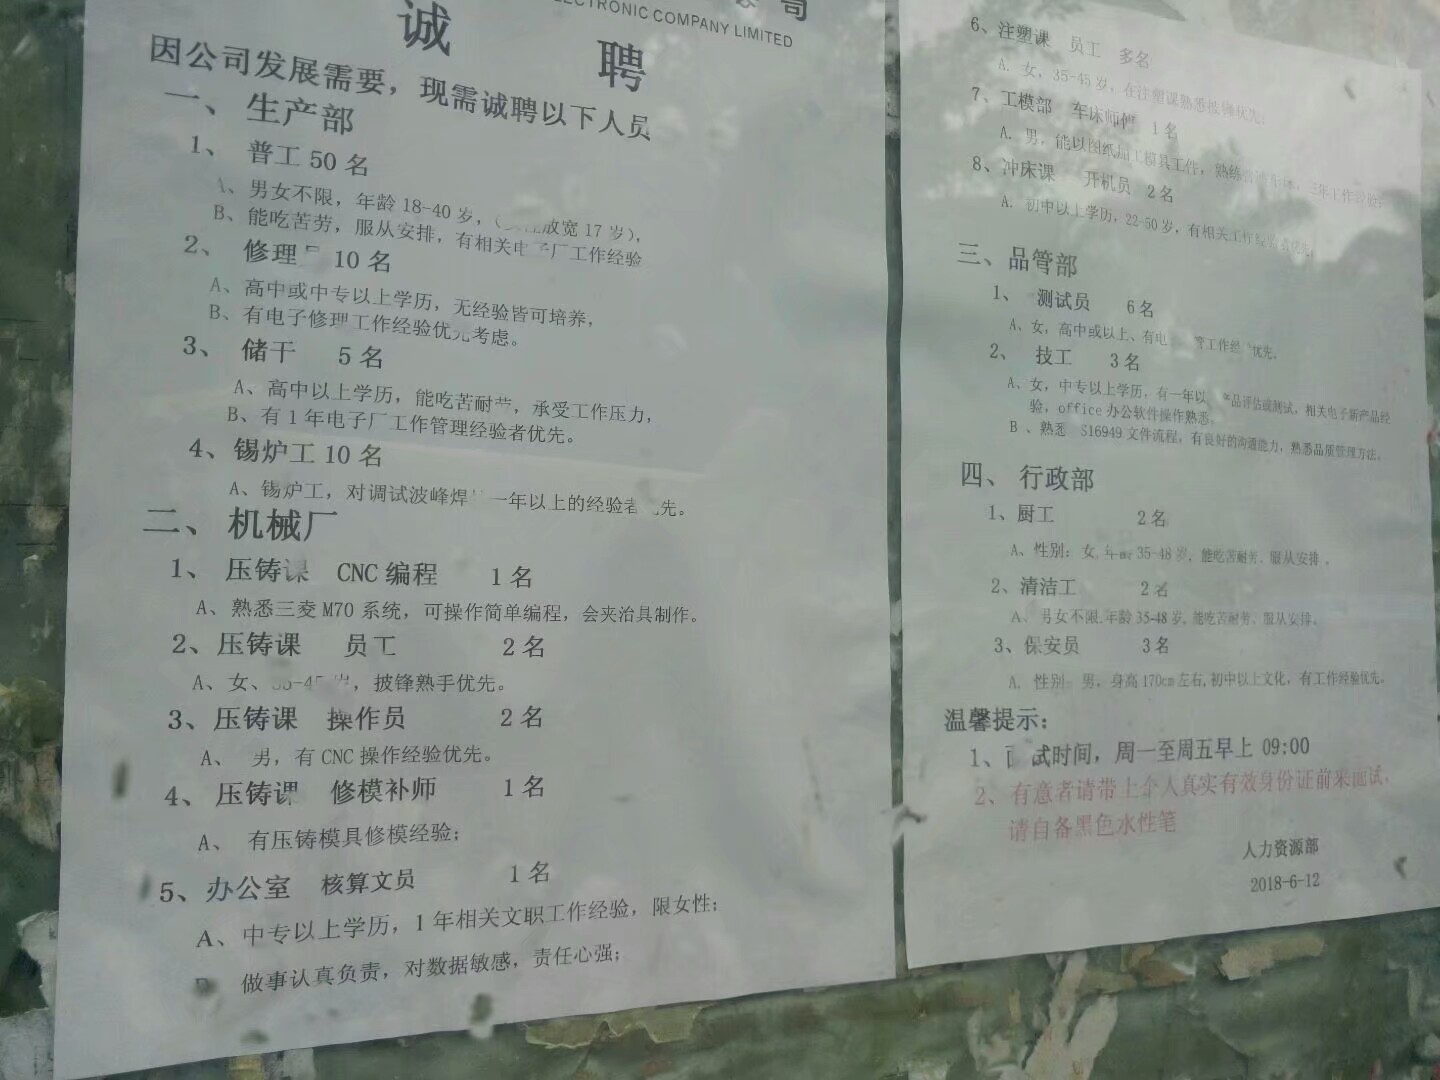 司
ECTRONIC COMPANY LIMITED
诚 聘
因公司发展需要，现需诚聘以下人员
一、生产部
1、 普工 50 名
、男女不限，年龄 18-40 岁，（ 放宽 17 岁），
B、能吃苦劳，服从安排，有相关电子厂工作经验
2、 修理 10 名
A、高中或中专以上学历，无经验皆可培养，
B、有电子修理工作经验优先考虑。
3、 储干 5 名
A、高中以上学历，能吃苦耐劳，承受工作压力，
B、有 1 年电子厂工作管理经验者优先。
4、锡炉工 10 名
A、锡炉工，对调试波峰焊 一年以上的经验者 先。
二、机械厂
1、 压铸课 CNC 编程 1 名
A、熟悉三菱 M70 系统，可操作简单编程，会夹治具制作。
2、压铸课 员工 2 名
A、女、35-45 岁，披锋熟手优先。
3、压铸课 操作员 2 名
A、 男，有 CNC 操作经验优先。
4、 压铸课 修模补师 1 名
A、 有压铸模具修模经验；
5、办公室 核算文员 1 名
A、中专以上学历，1 年相关文职工作经验，限女性；
做事认真负责，对数据敏感，责任心强；
6、注塑课 员工 多名
A. 女，35-45 岁，在注塑课熟悉披锋优先；
7、工模部 车床师傅 1 名
A. 男，能以图纸加工模具工件，熟练
8、冲床课 开机员 2 名
A. 初中以上学历，22-50 岁，有相关工作经验
三、品管部
1、 测试员 6 名
A、女，高中或以上、有电 管工作经 优先。
2、 技工 3 名
A、女，中专以上学历，有一年以 产品评估或测试，相关电子新产品经
验，office 办公软件操作熟悉。
B 、熟悉 S16949 文件流程，有良好的沟通能力，熟悉品质管理方法。
四、行政部
1、厨工 2 名
A、性别：女，年 35-48 岁，能吃苦耐劳、服从安排 。
2、清洁工 2 名
A、男女不限，年龄 35-48 岁，能吃苦耐劳、服从安排。
3、保安员 3 名
A. 性别 男，身高 170cm 左右，初中以上文化，有工作经验优先。
温馨提示：
1、 试时间，周一至周五早上 09:00
2、有意者请带上个人真实有效身份证前来面试，
请自备黑色水性笔
人力资源部
2018-6-12